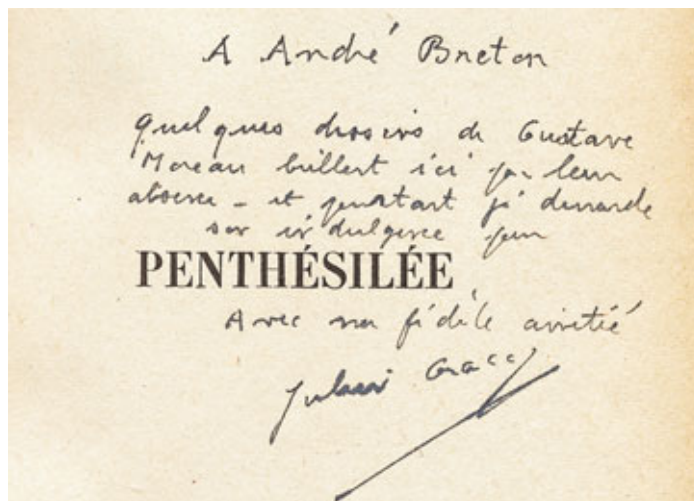 A André Breton
Quelques dessins de Gustave
Moreau brillent ici par leur
absence - et pourtant je demande
son indulgence pour
PENTHÉSILÉE
Avec ma fidèle amitié
Julien Gracq